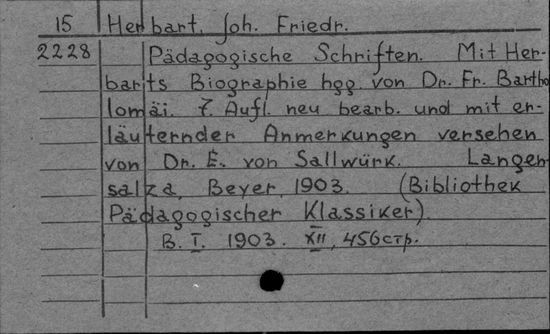 15 Herbart, Joh. Friedr.
2228 Pädagogische Schriften. Mit Her-
barts Biographie hgg. von Dr. Fr. Bartho
lomäi. 7. Aufl. neu bearb. und mit er-
läuternder Anmerkungen versehen
von Dr. E. von Sallwürk. Langen
salza, Beyer, 1903. (Bibliothek
Pädagogischer Klassiker)
B. I. 1903. XII, 456стр.